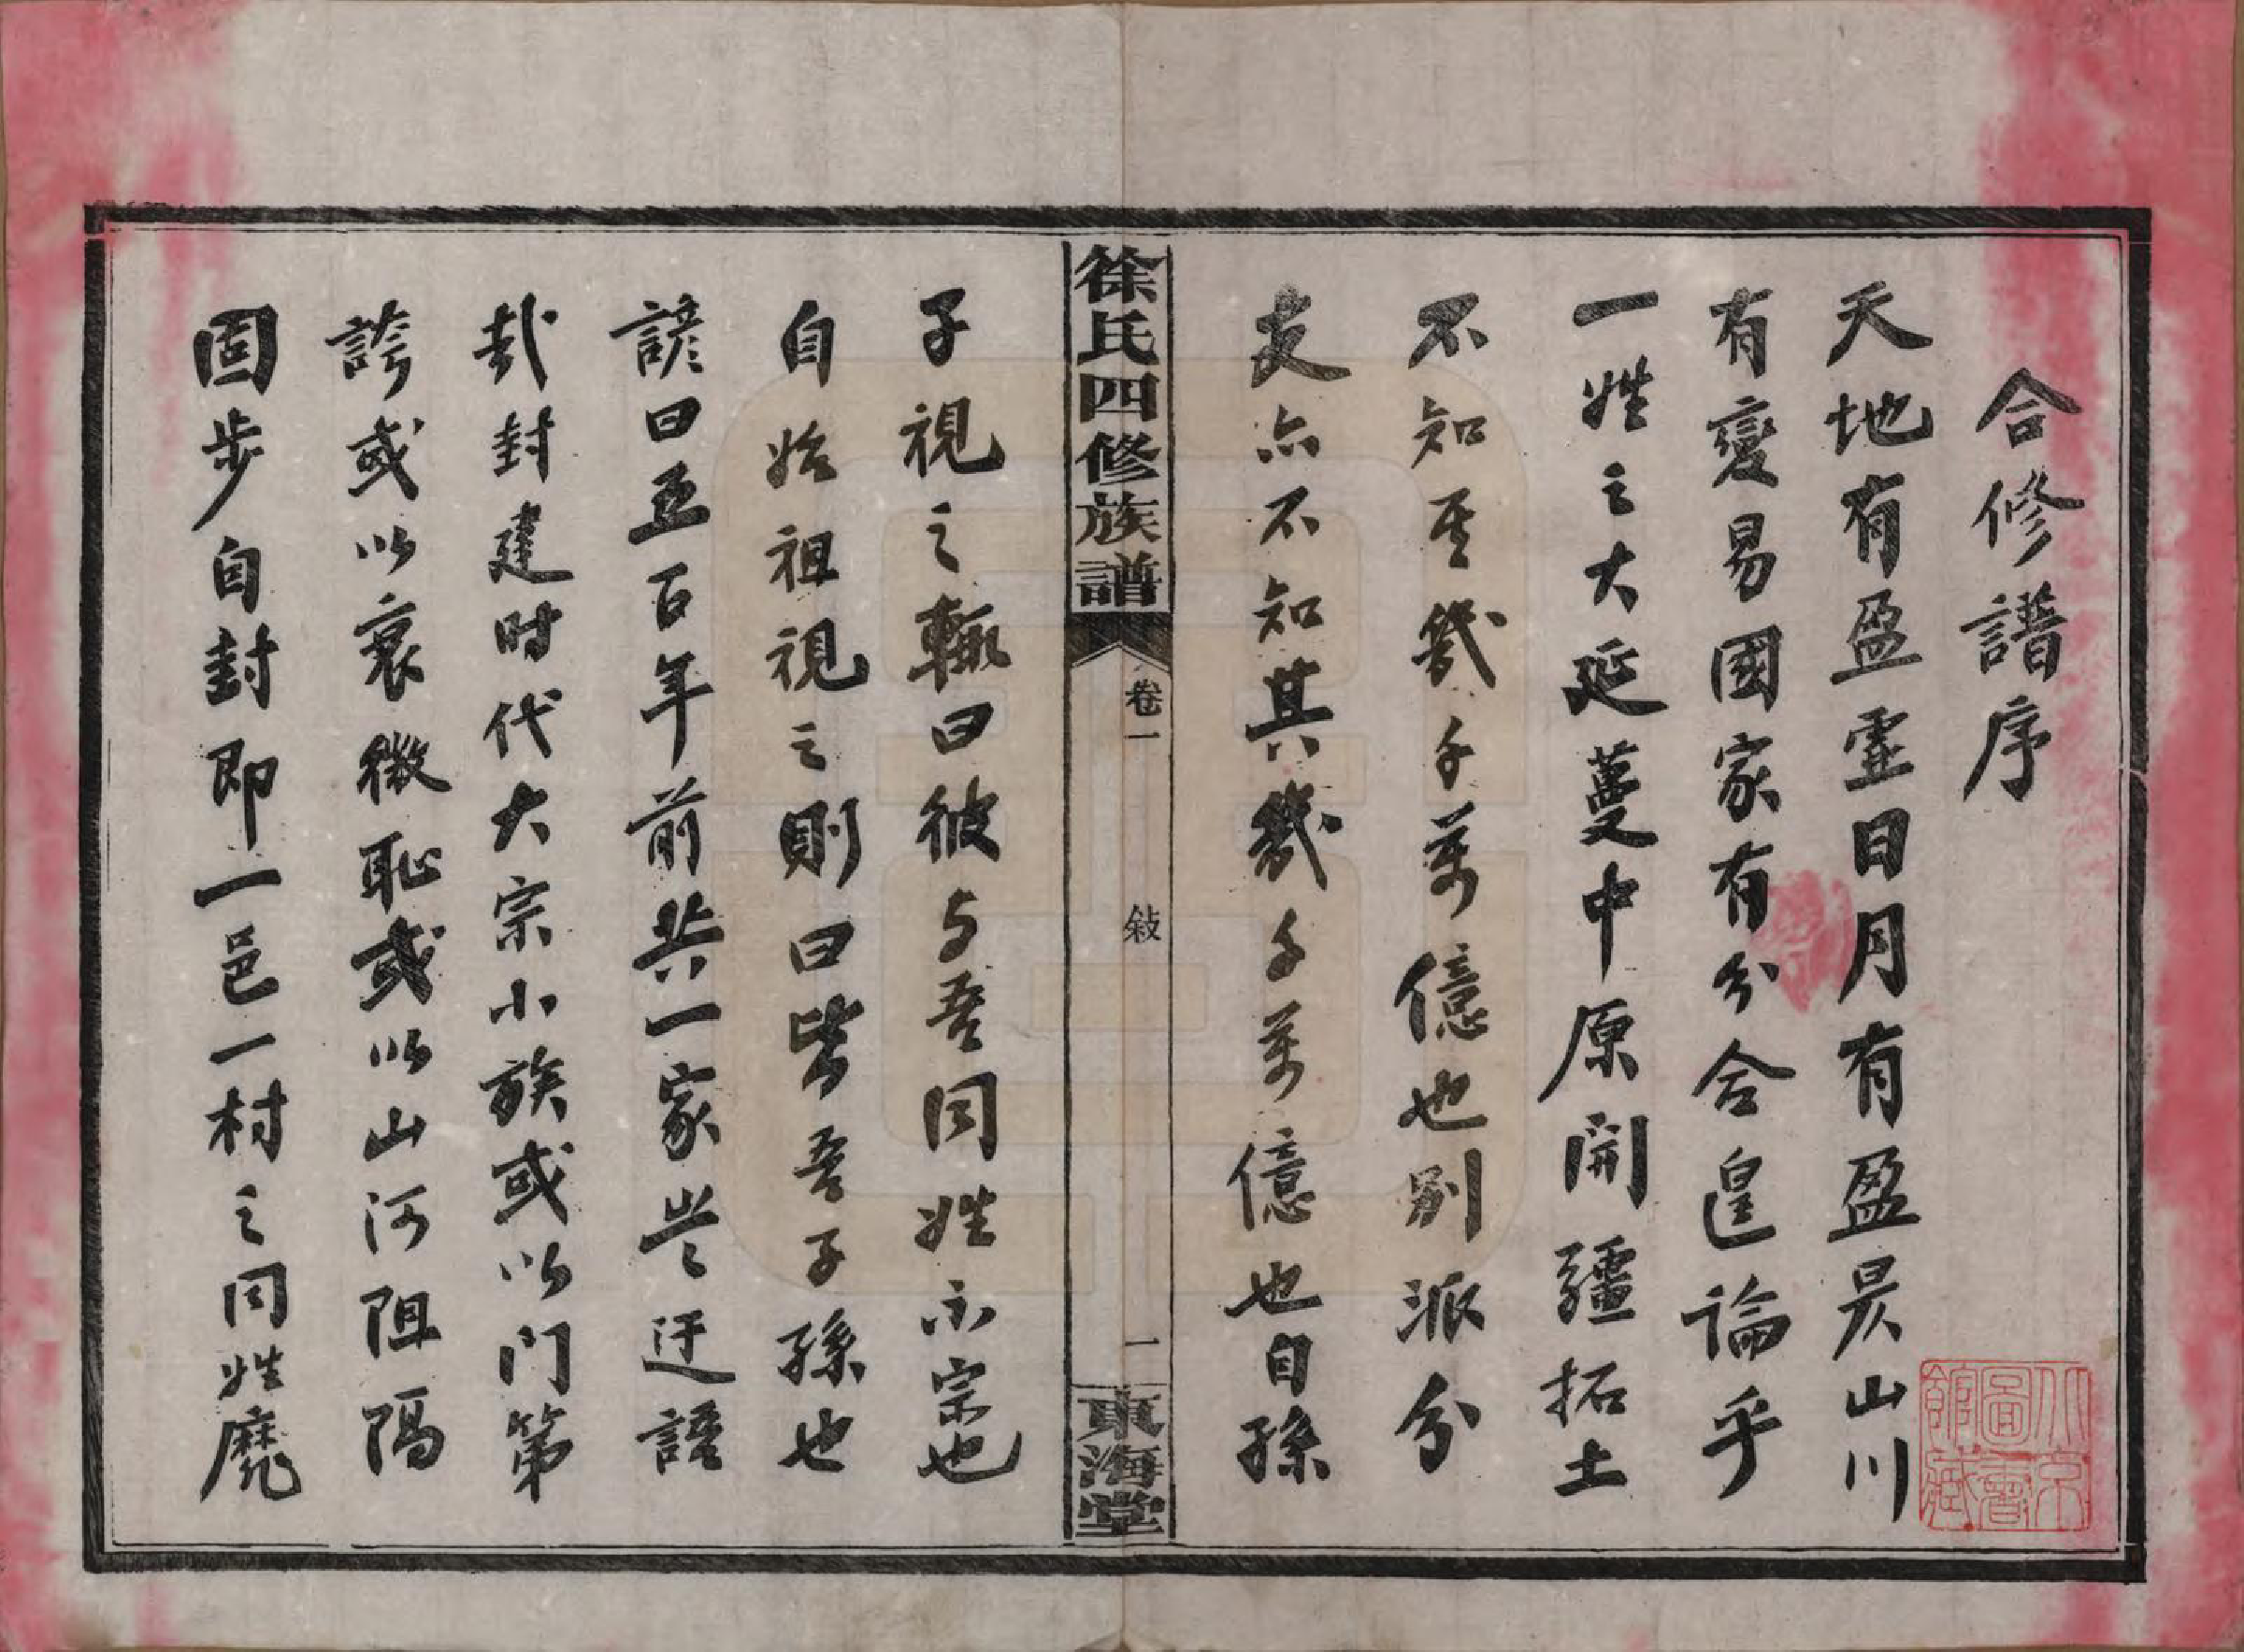 合修譜序
天地有盈虛日月有盈昃山川
有變易國家有分合遑論乎
一姓之大延蔓中原開疆拓土
不知其幾千萬億也別派分
支亦不知其幾千萬億也自孫
子視之輒曰彼与吾同姓不宗也
自始祖視之則曰皆吾子孫也
諺曰五百年前共一家豈迂語
哉封建时代大宗小族或以门第
誇或以衰微恥或以山河阻隔
固步自封即一邑一村之同姓
徐氏四修族譜
卷一
敍
一
東海堂
北京圖書館藏